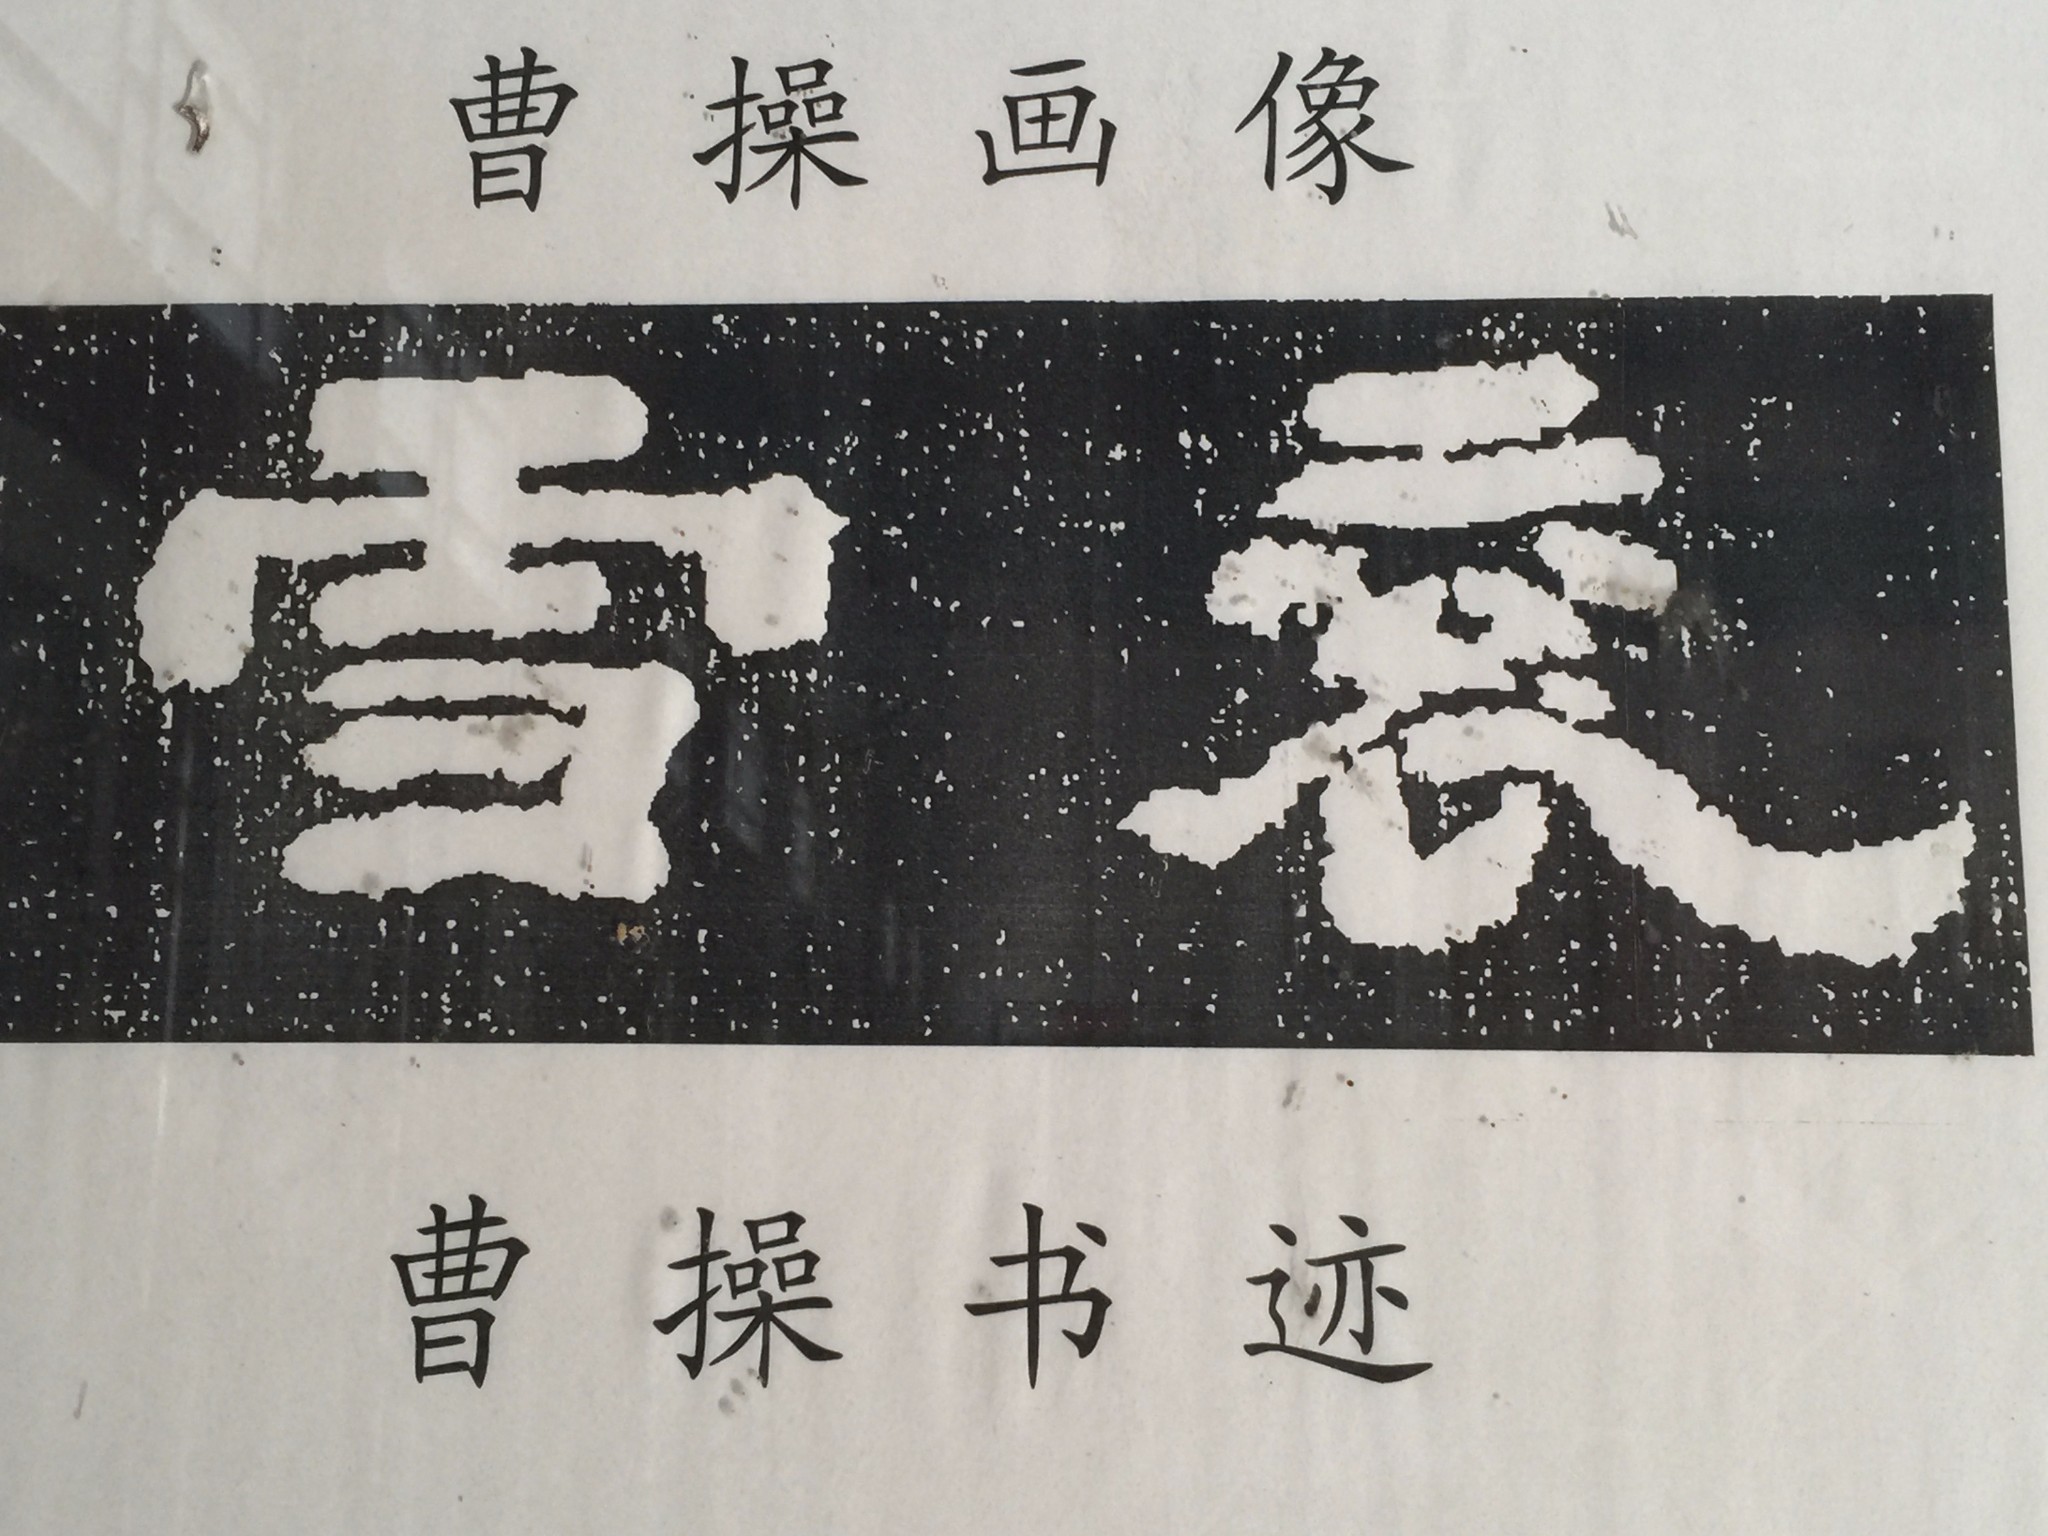 曹操画像
衮雪
曹操书迹